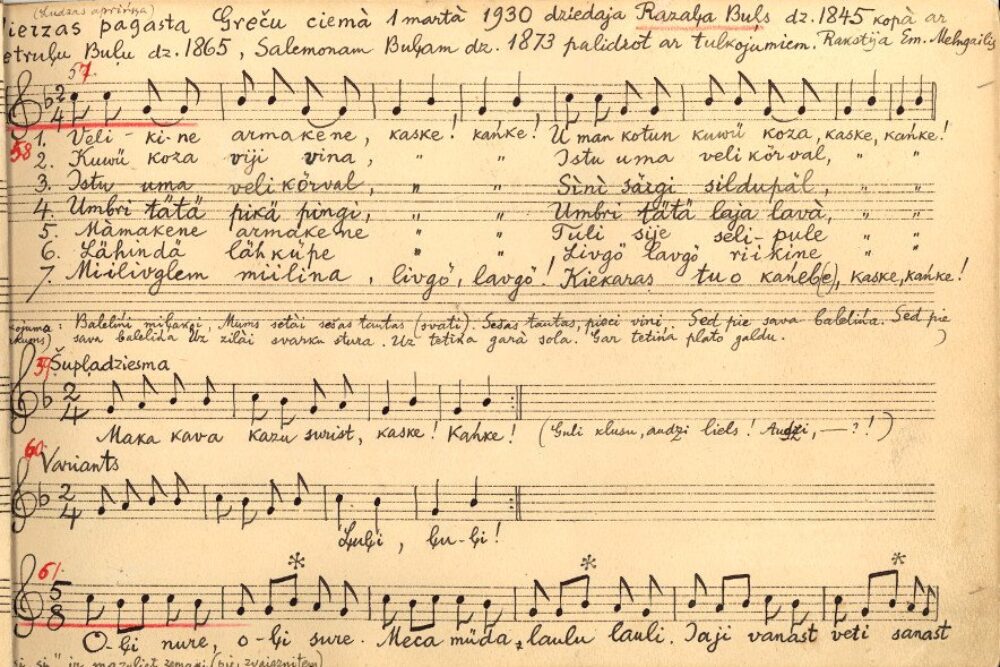 (Ludzas apriņķa)
Pierzas pagasta Greču ciemà 1 martà 1930 dziedaja Razaļa Buļs dz. 1845 kopà ar
Petruļu Buļu dz. 1865, Salemonam Buļam dz. 1873 palidzot ar tulkojumiem. Rakstija Em. Melngailis
57.
2/4
1. Veli-ki-ne armakene, kaske! kańke! U man kotun kuwü koza, kaske, kańke!
58
2. Kuwü koza viji vina, " " Istu uma veli körval, " "
3. Istu uma veli körval, " " Sìnì särgi sildupäl, " "
4. Umbri tätä pikä pingi, " " Umbri tätä laja lavà, " "
5. Màmakene armakene " " Tuli sije seli-pule " "
6. Lähindä lähküpe " " Livgö lavgö riikine " "
7. Miilivglem miilina, livgö, lavgö! Kiekaras tuo kańeb(e), kaske, kańke!
Balelińi miļaņģi, Mums setài sešas tautas (svati). Sešas tautas, pieci vini. Sed pie sava balelińa. Sed pie
sava balelińa Uz zilài svarku stura. Uz tetińa garà sola. Gar tetiņa plato galdu.
59 Šupļadziesma
2/4
Maka kava kazu surist, kaske! Kańke! (Guli klusu, audzi liels! Audzi, — ? !)
60. Variants
2/4
Ļuļi, ļu-ļi!
61.
5/8
* * *
O-ļi nure, o-ļi sure. Meca müda, laulu lauli. Jaji vanast veti sanast
ir mazliet zemaki